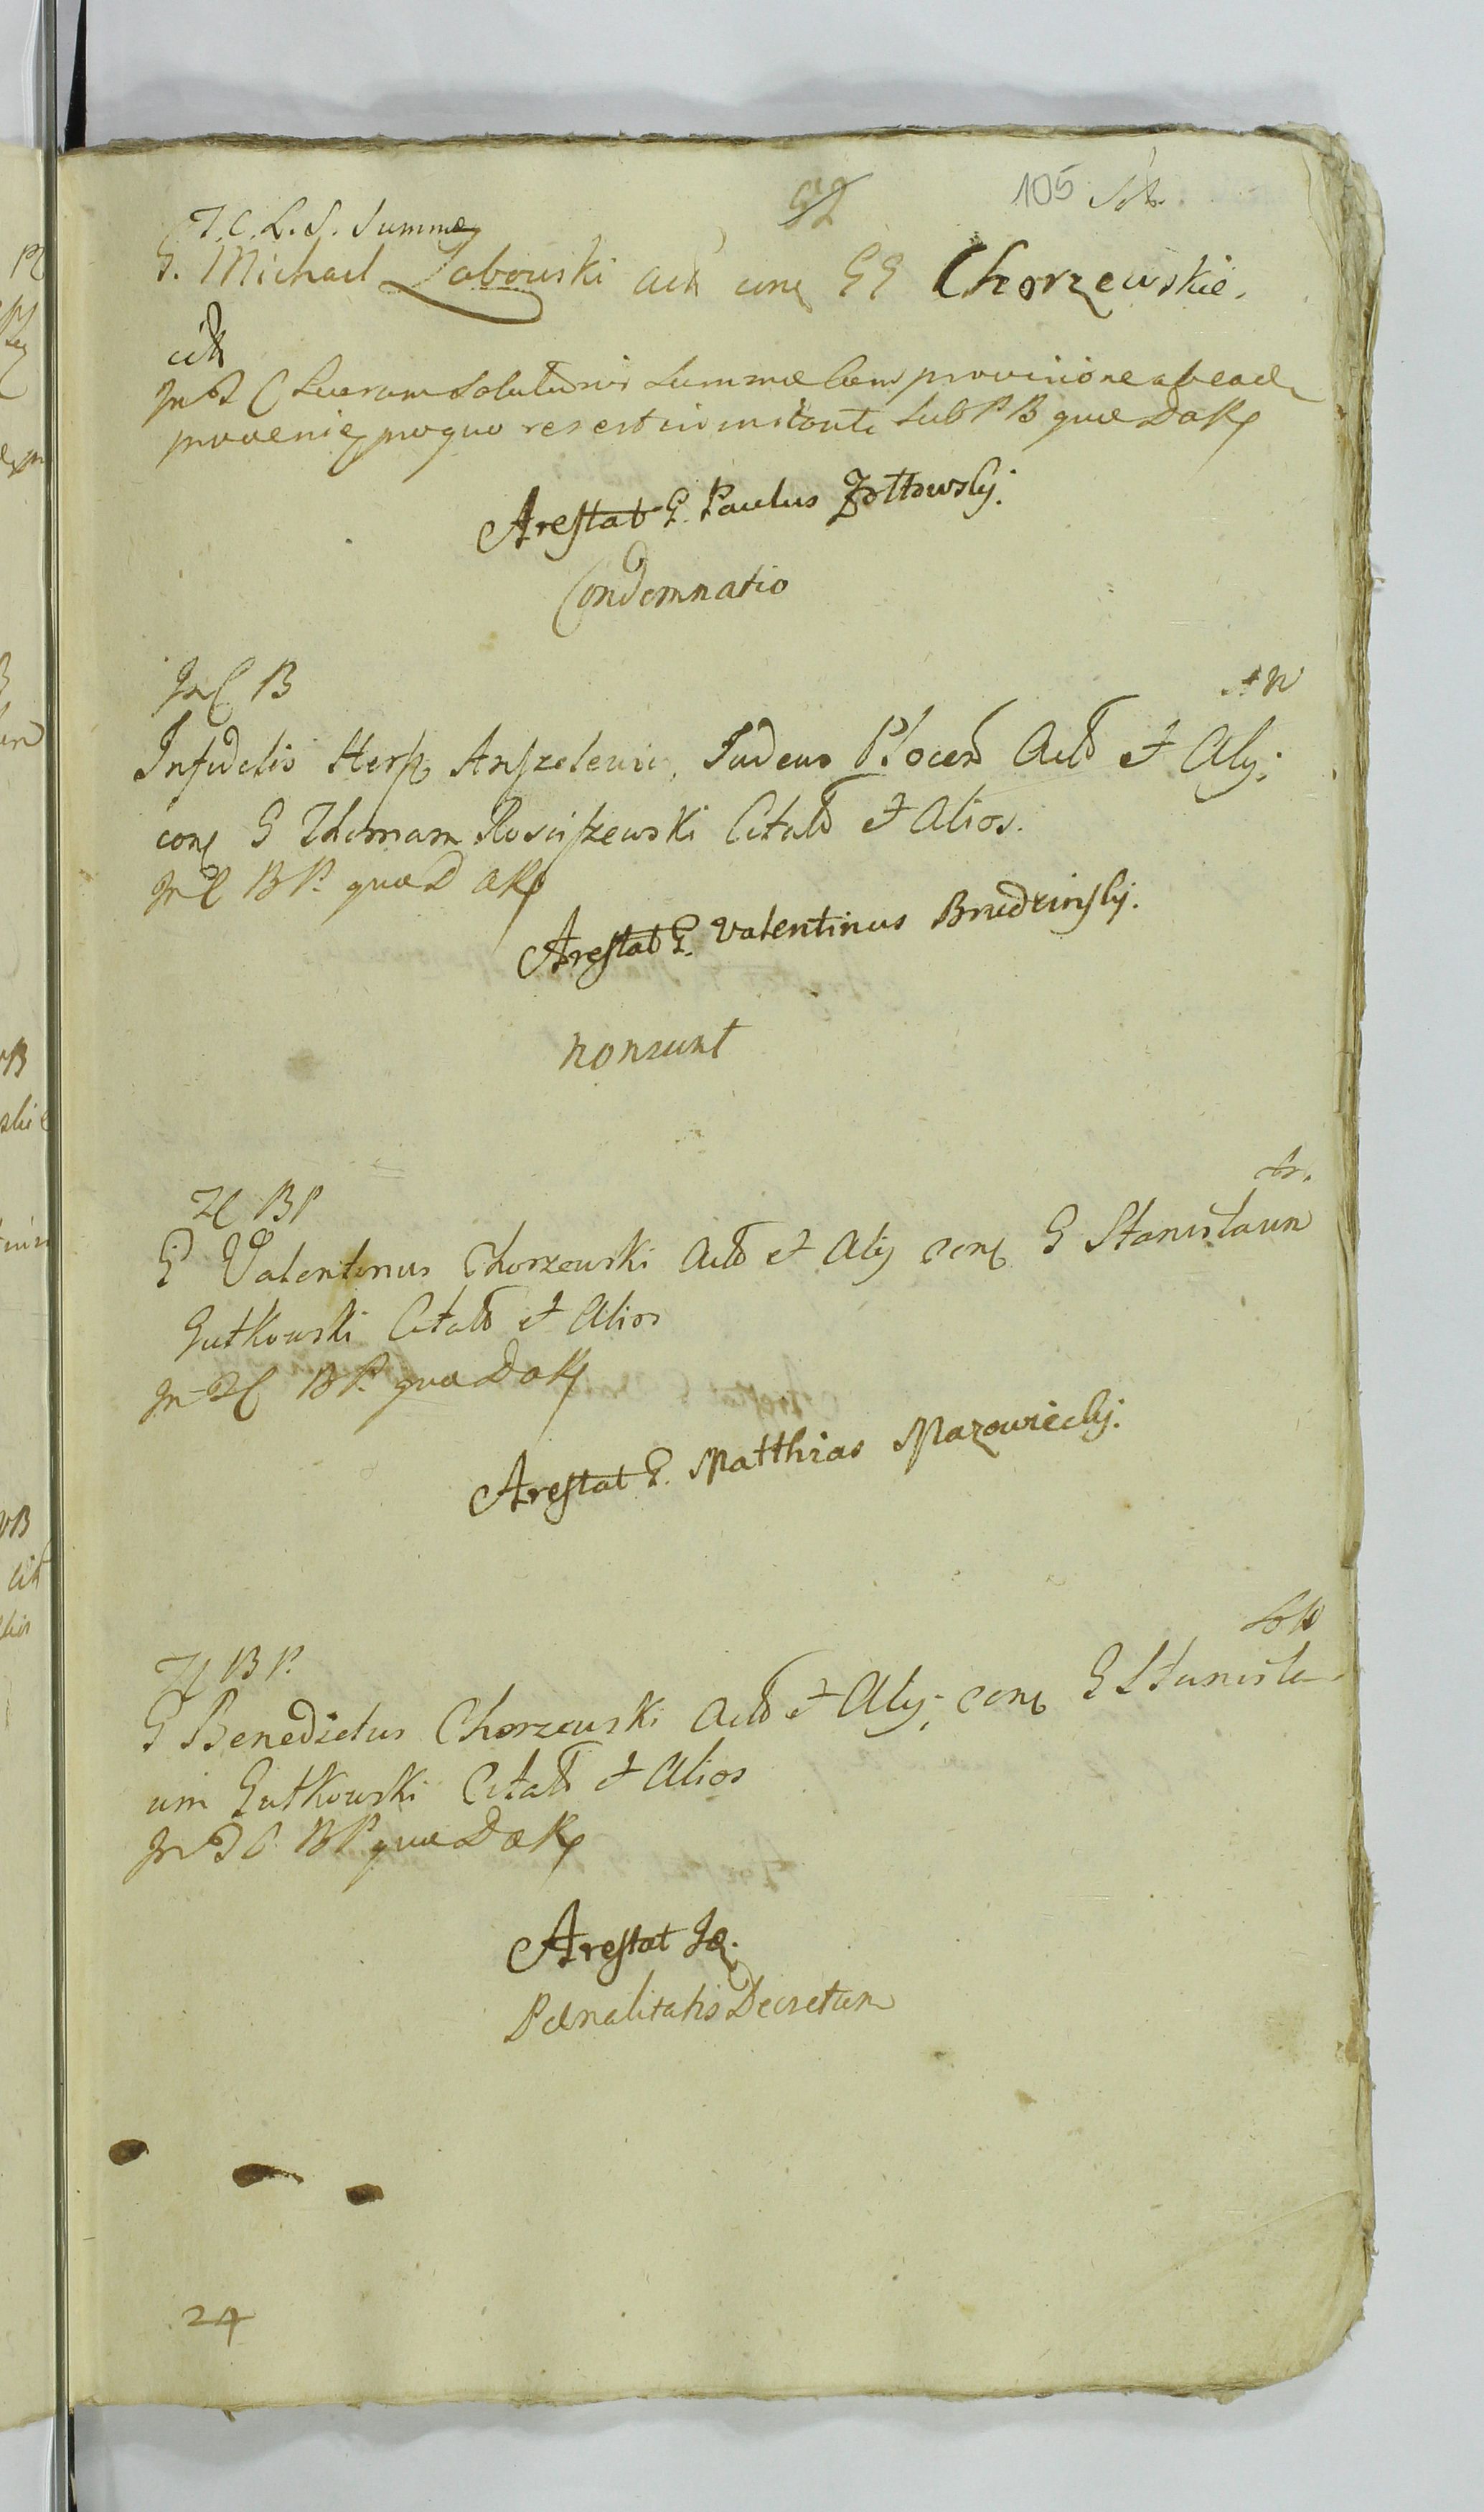 52 105
T. C. L. S. Summæ
G. Michael Łabowski Actt conq GG Chorzewskie.
citt
In T C Luerum Solutionis Summæ cum provisione ab eade
provenie pro quo res est in instanti Sub P B quæ D a R
Arestat G. Paulus Zołtowsky.
Condemnatio
In C B
Infidelis Herszk Anszelewic, Judeus Płocen Actt et Alij;
conq G Thomam Rosciszewski Citatt et Alios.
In T C B P. quæ D a R
Arestat G. Valentinus Brudzinsky.
non sunt
T C B P
G Valentinus Chorzewski Actt et Alij conq G Stanislaum
Gutkowski Citatt et Alios
In T C B P. quæ D a R
Arestat G. Matthias Mazowiecky.
T C B P.
G Benedictus Chorzewski Actt et Alij; conq G Stanisla
um Gutkowski Citatt et Alios
In T C B P quæ D a R
Arestat Id.
Pænalitatis Decretum
24